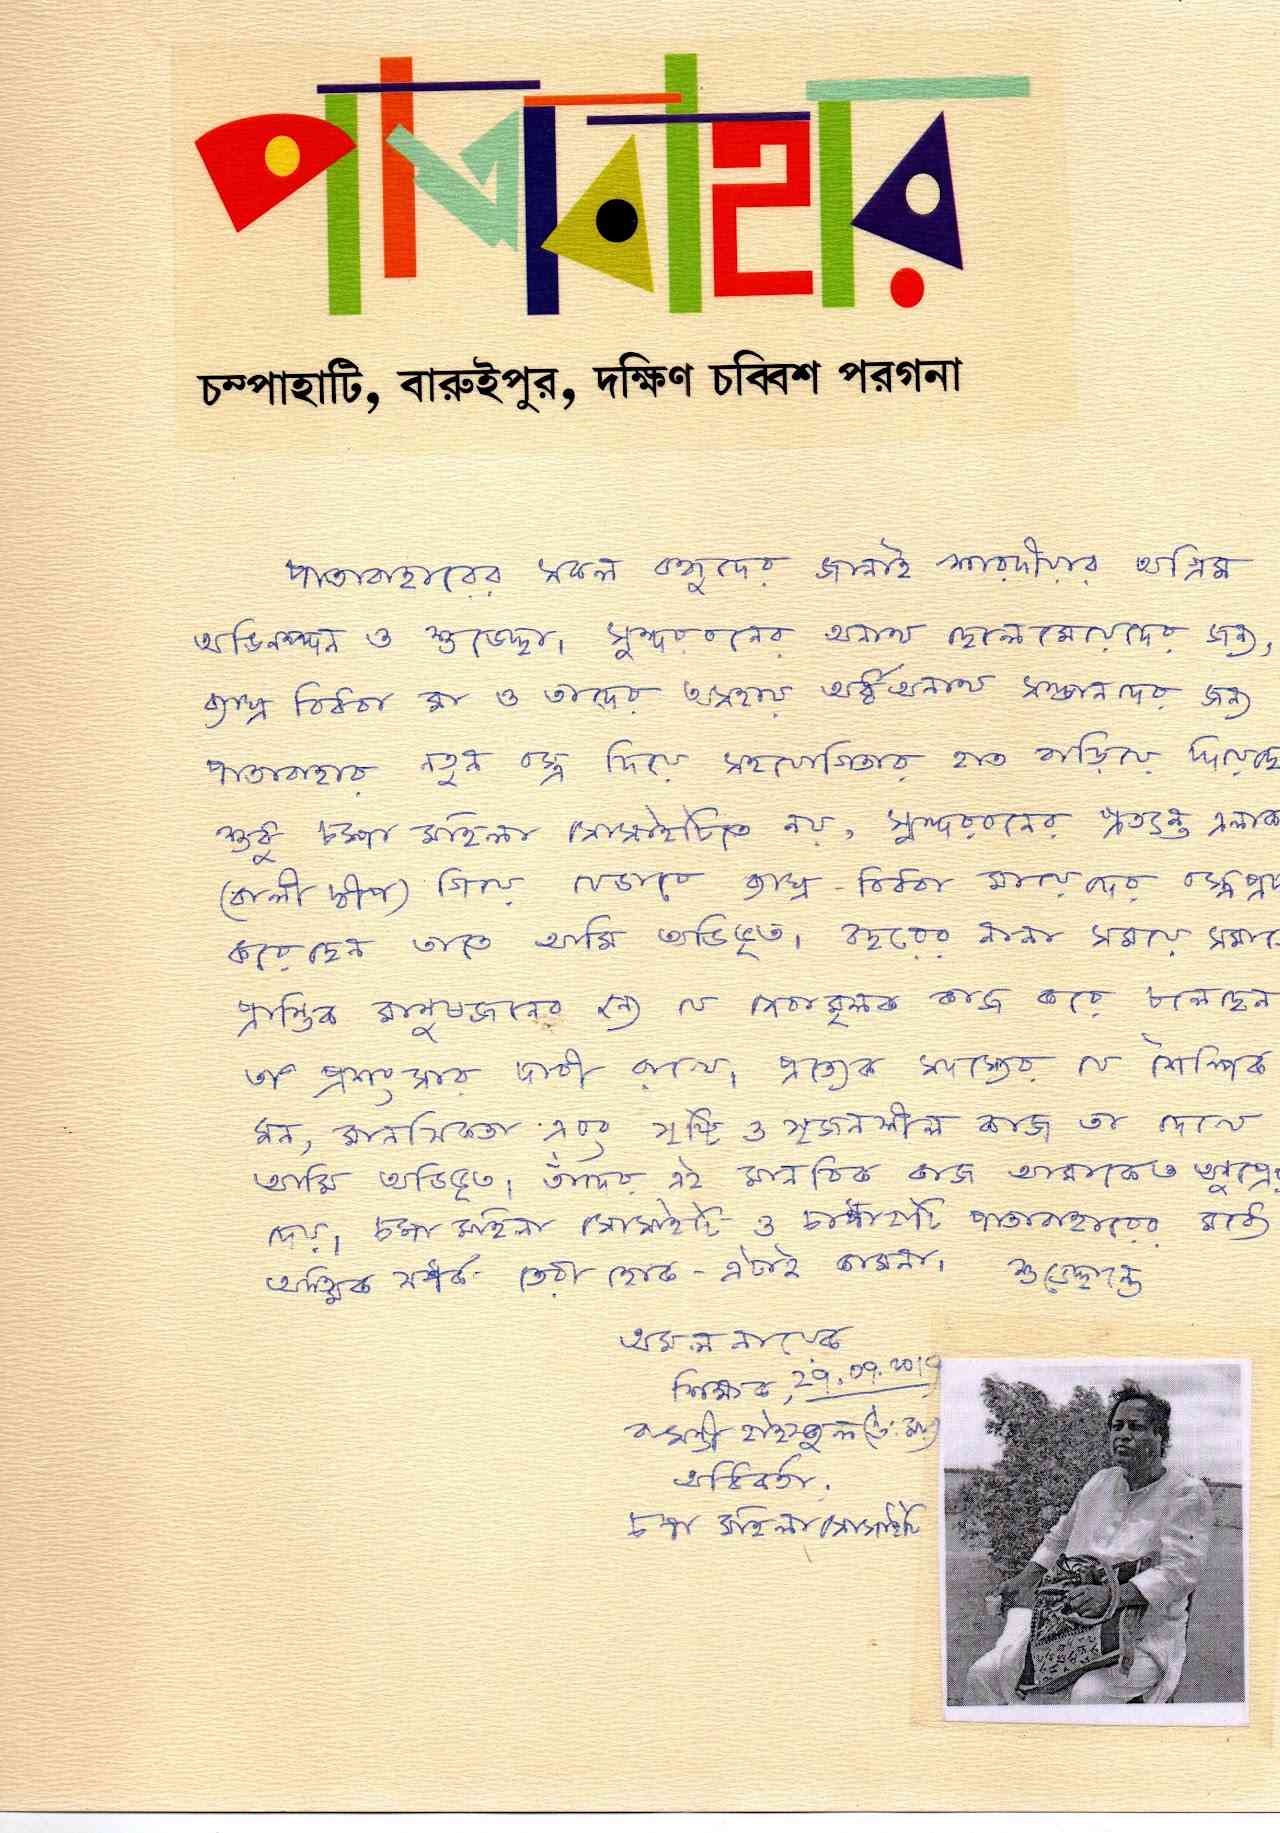 পাতাবাহার
চম্পাহাটি, বারুইপুর, দক্ষিণ চব্বিশ পরগনা
পাতাবাহারের সকল বন্ধুদের জানাই শারদীয়ার অগ্রিম
অভিনন্দন ও শুভেচ্ছা। সুন্দরবনের অনাথ ছেলেমেয়েদের জন্য,
ব্যাঘ্র বিধবা মা ও তাদের অসহায় অর্ধঅনাথ সন্তানদের জন্য
পাতাবাহার নতুন বস্ত্র দিয়ে সহযোগিতার হাত বাড়িয়ে দিয়েছে
শুধু চম্পা মহিলা সোসাইটিতে নয়, সুন্দরবনের প্রত্যন্ত
(বালী দ্বীপ) গিয়ে যেভাবে ব্যাঘ্র-বিধবা মায়েদের
করেছেন তাতে আমি অভিভূত। বছরের নানা সময়ে
প্রান্তিক মানুষজনের জন্য যে সেবামূলক কাজ করে চলেছেন
তা প্রশংসার দাবী রাখে। প্রত্যেক সদস্যের যে শৈল্পিক
মন, মানসিকতা এবং সৃষ্টি ও সৃজনশীল কাজ তা দেখে
আমি অভিভূত। তাঁদের এই মানবিক কাজ আমাকেও
দেয়। চম্পা মহিলা সোসাইটি ও চম্পাহাটি পাতাবাহারের মধ্যে
আত্মিক সম্পর্ক তৈরী হোক - এটাই কামনা। শুভেচ্ছান্তে
অমল নায়েক
শিক্ষক, 29.09.2019
বাসন্তী হাইস্কুল
অধিকর্তা,
চম্পা মহিলা সোসাইটি